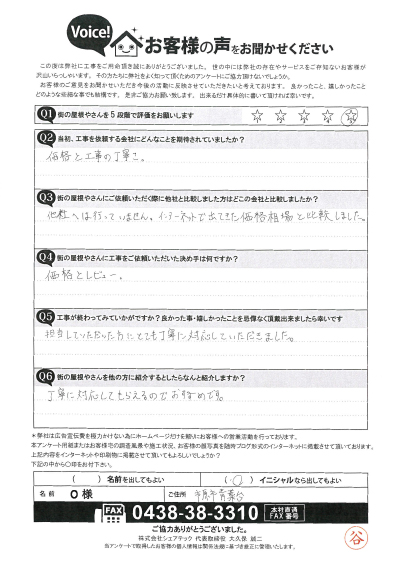 Voice!
お客様の声をお聞かせください
この度は弊社に工事をご用命頂き誠にありがとうございました。世の中には弊社の存在やサービスをご存知ないお客様が
沢山いらっしゃいます。その方たちに弊社をよく知って頂くためのアンケートにご協力頂けないでしょうか。
お客様のご意見をお聞かせいただき今後の活動に反映させていただきたいと考えております。良かったこと、嬉しかったこと
どのような些細な事でも結構です。是非ご協力お願い致します。出来るだけ具体的に書いて頂ければ幸いです。
Q1 街の屋根やさんを5段階で評価をお願いします
Q2 当初、工事を依頼する会社にどんなことを期待されていましたか?
価格と工事の丁寧さ。
Q3 街の屋根やさんにご依頼いただく際に他社と比較しました方はどこの会社と比較しましたか?
他社へは行っていません。インターネットで出てきた価格相場と比較しました。
Q4 街の屋根やさんに工事をご依頼いただいた決め手は何ですか?
価格とレビュー。
Q5 工事が終わってみていかがですか?良かった事・嬉しかったことを忌憚なく頂戴出来ましたら幸いです
担当していただいた方にとても丁寧に対応していただきました。
Q6 街の屋根やさんを他の方に紹介するとしたらなんと紹介しますか?
丁寧に対応してもらえるのでおすすめです。
*弊社は広告宣伝費を極力かけない為にホームページだけを頼りにお客様への営業活動を行っております。
本アンケート用紙またはお客様宅の調査風景や施工状況、お客様の顔写真を随時ブログ形式のインターネットに掲載させて頂いております。
上記内容をインターネットや印刷物に掲載させて頂いてもよろしいでしょうか?
下記の中から〇印をお付下さい。
( ) 名前を出してもよい ( ○ ) イニシャルなら出してもよい
名前 O様 ご住所 市原市青葉台
FAX 0438-38-3310 本社直通 FAX番号
ご協力ありがとうございました。
株式会社シェアテック 代表取締役 大久保 誠二
当アンケートで取得したお客様の個人情報は関係法規に基づき適正に管理いたします。
谷